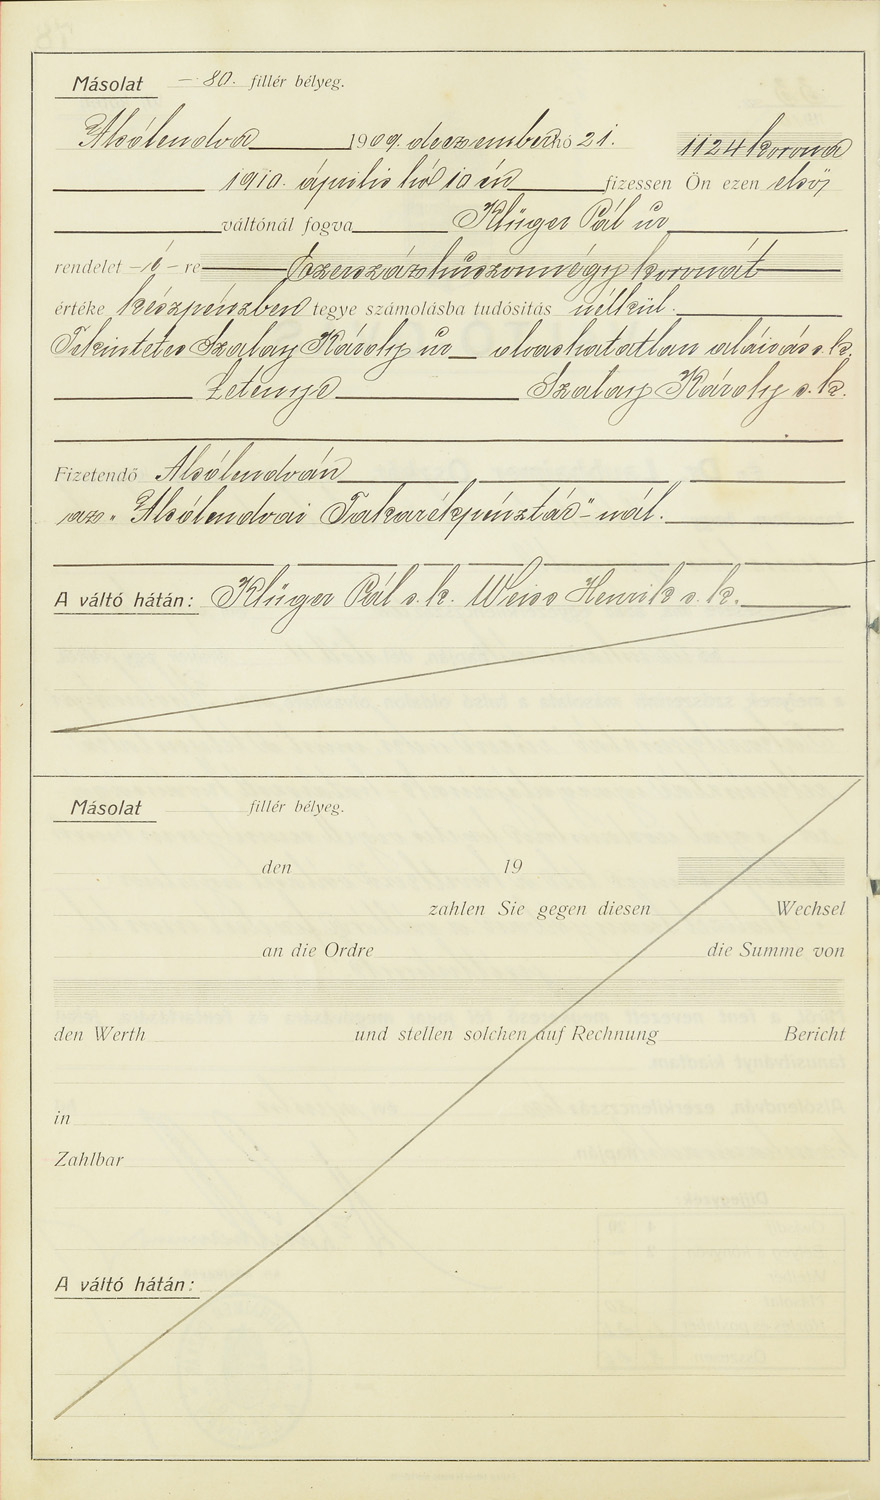 Másolat — 80. fillér bélyeg.
Alsólendva 1909. deczember hó 21. 1124 korona
1910. április hó 10 én fizessen Ön ezen első
váltónál fogva Klüger Pál úr
rendelet – é – re Ezerszázhuszonnégy koronát
értéke készpénzben tegye számolásba tudósítás nélkül.
Tekintetes Szalay Károly úr olvashatatlan aláírás s. k.
Letenye Szalay Károly s. k.
Fizetendő Alsólendván
az „Alsólendvai Takarékpénztár"-nál.
A váltó hátán: Klüger Pál s. k. Weiss Henrik s. k.
Másolat fillér bélyeg.
den 19
zahlen Sie gegen diesen Wechsel
an die Ordre die Summe von
den Werth und stellen solchen auf Rechnung Bericht
in
Zahlbar
A váltó hátán: